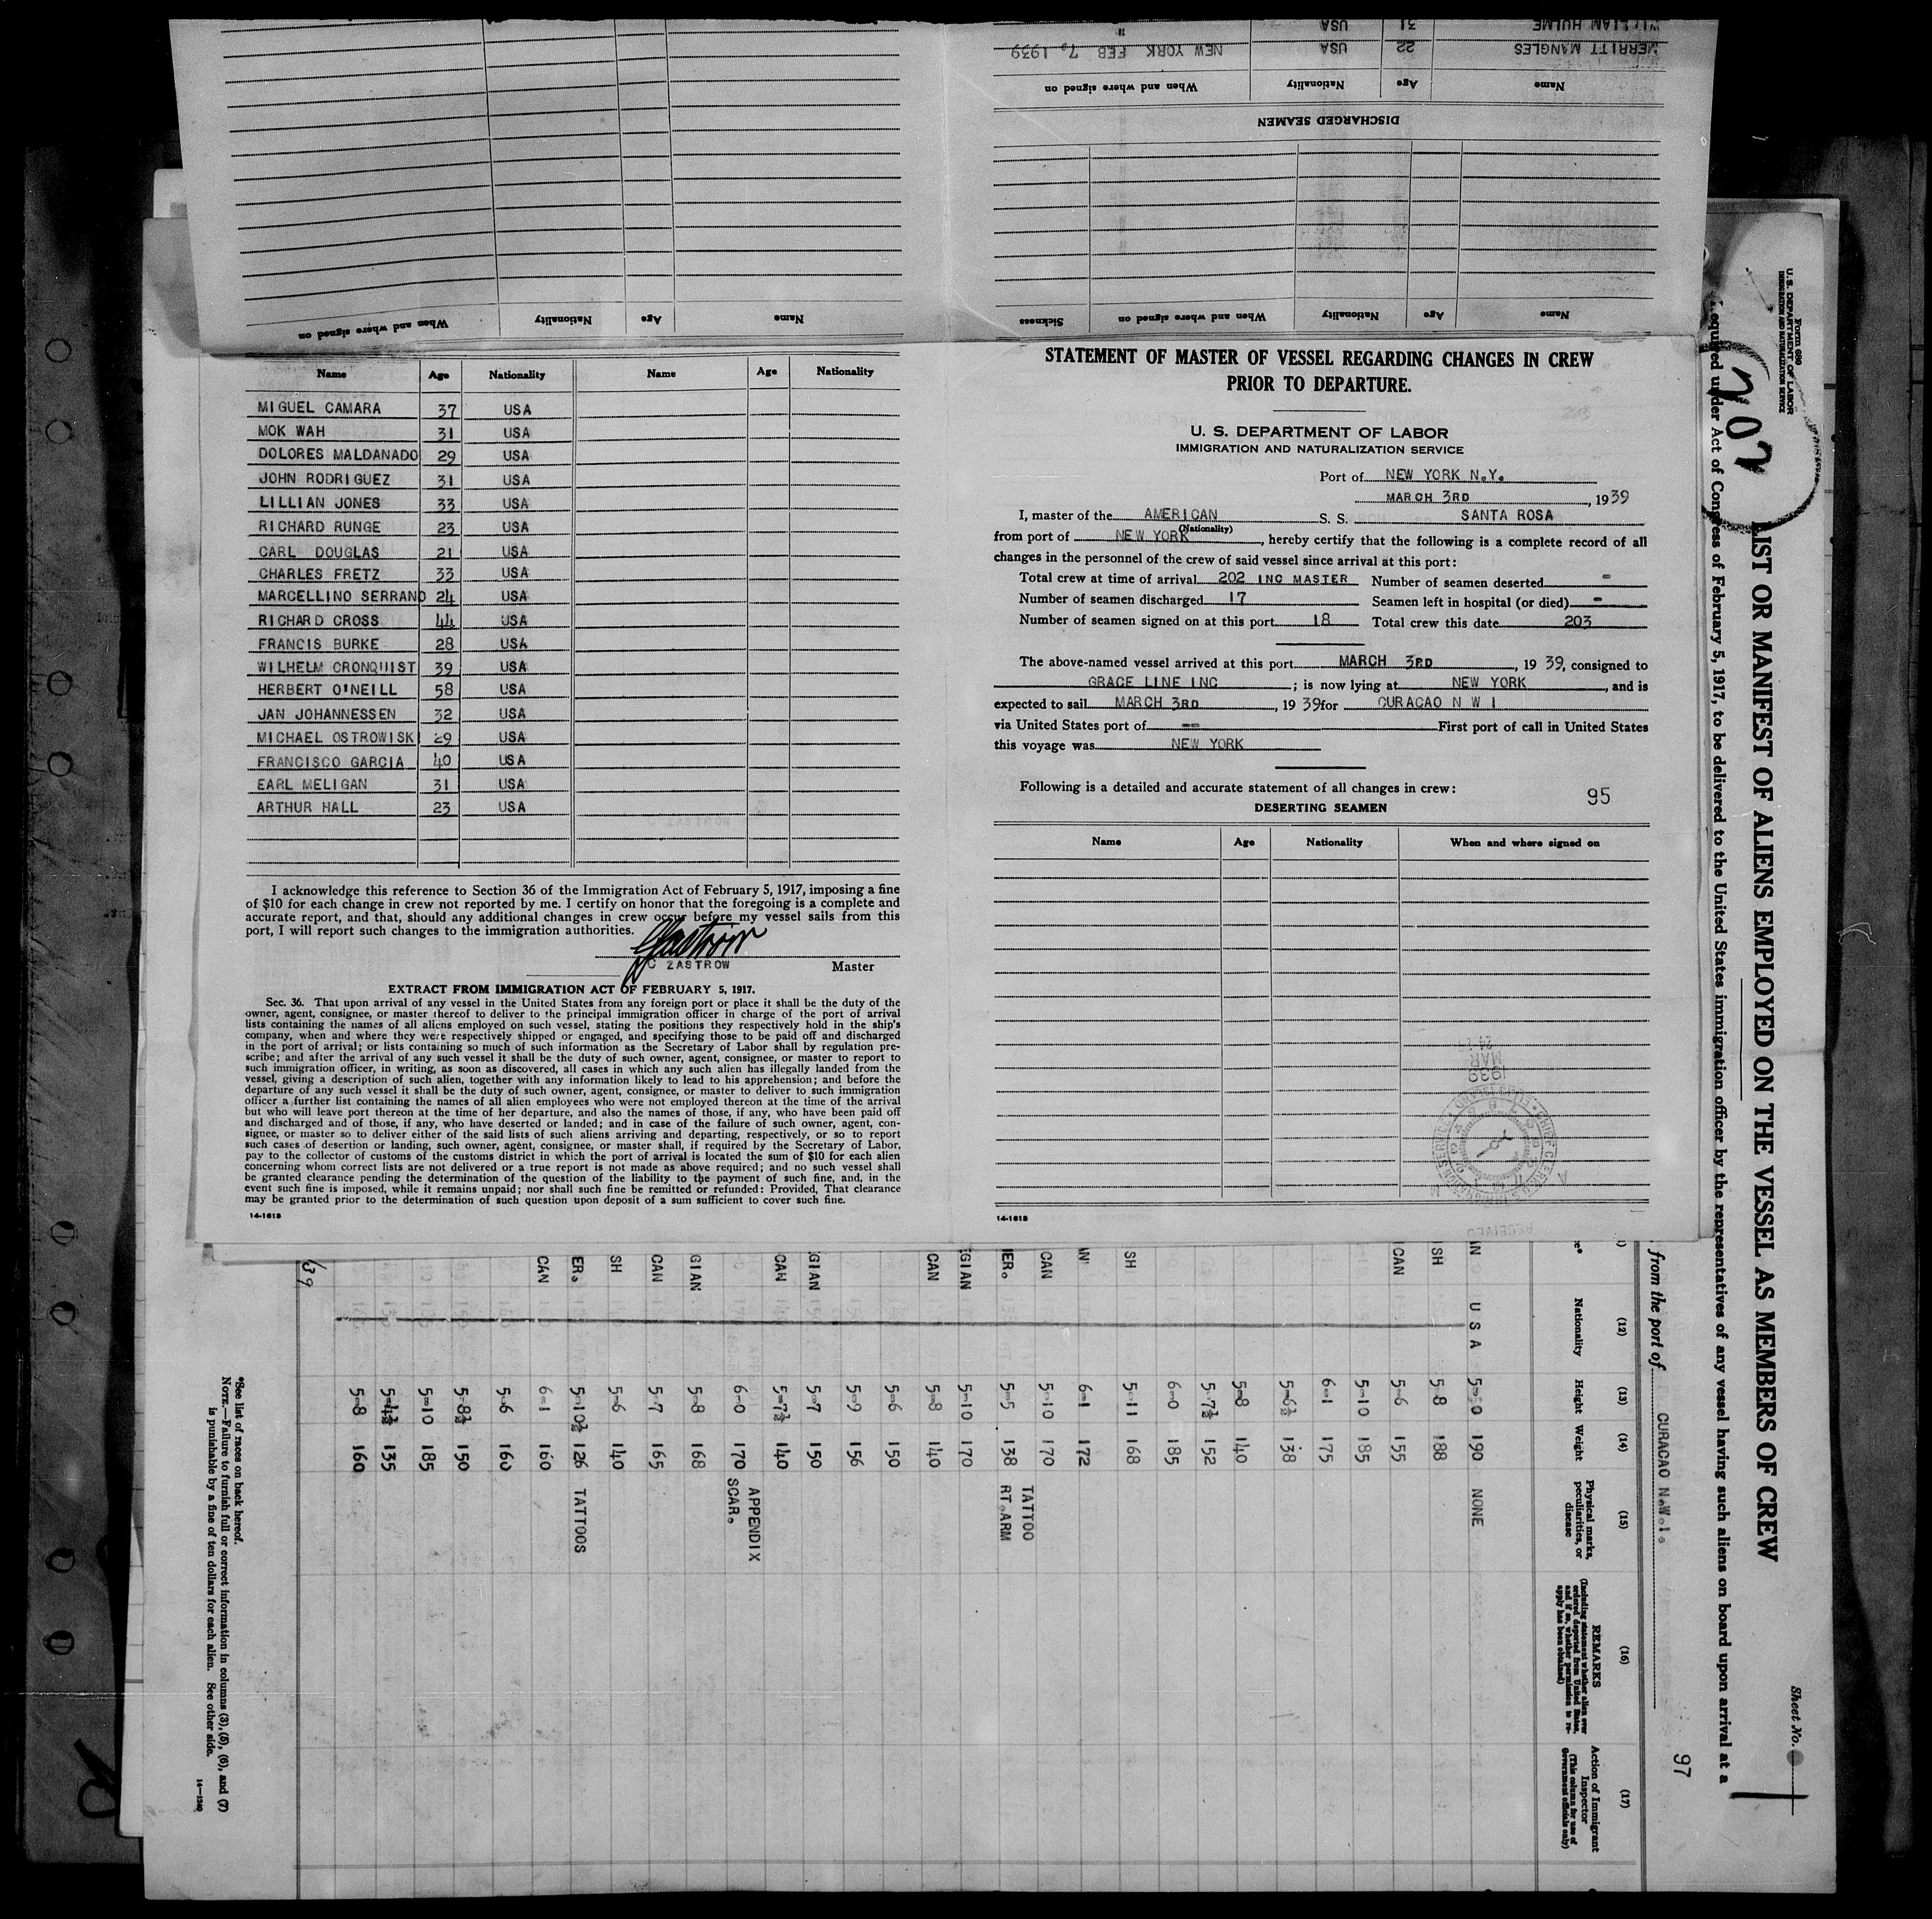 MERRITT MANGLES 22 USA NEW YORK FEB 7. 1939
HULME 31 USA "
Name Age Nationality When and where signed on
DISCHARGED SEAMEN
When and where signed on Nationality Age Name
Sickness When and where signed on Nationality Age Name
Name Age Nationality Name Age Nationality
MIGUEL CAMARA 37 USA
MOK WAH 31 USA
DOLORES MALDANADO 29 USA
JOHN RODRIGUEZ 31 USA
LILLIAN JONES 33 USA
RICHARD RUNGE 23 USA
CARL DOUGLAS 21 USA
CHARLES FRETZ 33 USA
MARCELLINO SERRANO 24 USA
RICHARD CROSS 44 USA
FRANCIS BURKE 28 USA
WILHELM CRONQUIST 39 USA
HERBERT O'NEILL 58 USA
JAN JOHANNESSEN 32 USA
MICHAEL OSTROWISK 29 USA
FRANCISCO GARCIA 40 USA
EARL MELIGAN 31 USA
ARTHUR HALL 23 USA
I acknowledge this reference to Section 36 of the Immigration Act of February 5, 1917, imposing a fine
of $10 for each change in crew not reported by me. I certify on honor that the foregoing is a complete and
accurate report, and that, should any additional changes in crew occur before my vessel sails from this
port, I will report such changes to the immigration authorities.
C ZASTROW Master
EXTRACT FROM IMMIGRATION ACT OF FEBRUARY 5, 1917.
Sec. 36. That upon arrival of any vessel in the United States from any foreign port or place it shall be the duty of the
owner, agent, consignee, or master thereof to deliver to the principal immigration officer in charge of the port of arrival
lists containing the names of all aliens employed on such vessel, stating the positions they respectively hold in the ship's
company, when and where they were respectively shipped or engaged, and specifying those to be paid off and discharged
in the port of arrival; or lists containing so much of such information as the Secretary of Labor shall by regulation pre-
scribe; and after the arrival of any such vessel it shall be the duty of such owner, agent, consignee, or master to report to
such immigration officer, in writing, as soon as discovered, all cases in which any such alien has illegally landed from the
vessel, giving a description of such alien, together with any information likely to lead to his apprehension; and before the
departure of any such vessel it shall be the duty of such owner, agent, consignee, or master to deliver to such immigration
officer a further list containing the names of all alien employees who were not employed thereon at the time of the arrival
but who will leave port thereon at the time of her departure, and also the names of those, if any, who have been paid off
and discharged and of those, if any, who have deserted or landed; and in case of the failure of such owner, agent, con-
signee, or master so to deliver either of the said lists of such aliens arriving and departing, respectively, or so to report
such cases of desertion or landing, such owner, agent, consignee, or master shall, if required by the Secretary of Labor,
pay to the collector of customs of the customs district in which the port of arrival is located the sum of $10 for each alien
concerning whom correct lists are not delivered or a true report is not made as above required; and no such vessel shall
be granted clearance pending the determination of the question of the liability to the payment of such fine, and, in the
event such fine is imposed, while it remains unpaid; nor shall such fine be remitted or refunded: Provided, That clearance
may be granted prior to the determination of such question upon deposit of a sum sufficient to cover such fine.
14-1618
STATEMENT OF MASTER OF VESSEL REGARDING CHANGES IN CREW
PRIOR TO DEPARTURE.
U. S. DEPARTMENT OF LABOR
IMMIGRATION AND NATURALIZATION SERVICE
Port of NEW YORK N.Y.
MARCH 3RD, 1939
I, master of the AMERICAN S. S. SANTA ROSA
(Nationality)
from port of NEW YORK, hereby certify that the following is a complete record of all
changes in the personnel of the crew of said vessel since arrival at this port:
Total crew at time of arrival 202 INC MASTER Number of seamen deserted -
Number of seamen discharged 17 Seamen left in hospital (or died) -
Number of seamen signed on at this port 18 Total crew this date 203
The above-named vessel arrived at this port MARCH 3RD, 1939, consigned to
GRACE LINE INC; is now lying at NEW YORK, and is
expected to sail MARCH 3RD, 1939 for CURACAO N W I
via United States port of -- First port of call in United States
this voyage was NEW YORK
Following is a detailed and accurate statement of all changes in crew: 95
DESERTING SEAMEN
Name Age Nationality When and where signed on
1939
MAR
14-1618
Form 680
U. S. DEPARTMENT OF LABOR
IMMIGRATION AND NATURALIZATION SERVICE
202
Sheet No.
LIST OR MANIFEST OF ALIENS EMPLOYED ON THE VESSEL AS MEMBERS OF CREW
required under Act of Congress of February 5, 1917, to be delivered to the United States immigration officer by the representatives of any vessel having such aliens on board upon arrival at a
97
from the port of CURACAO N.W.I.
(12) (13) (14) (15) (16) (17)
Nationality Height Weight Physical marks, peculiarities, or disease REMARKS (Including statement whether alien ever ordered deported from United States, and if so, whether permission to reapply has been obtained) Action of Immigrant Inspector (This column for use of Government officials only)
AN U S A 5-10 190 NONE
SH 5-8 188
CAN 5-6 155
5-10 185
6-1 175
5-6½ 138
5-8 140
5-7½ 152
6-0 185
SH 5-11 168
AN 6-1 172
CAN 5-10 170 TATTOO
ER. 5-5 138 RT.ARM
GIAN 5-10 170
CAN 5-8 140
5-6 150
5-9 156
GIAN 5-7 150
CAN 5-7½ 140 APPENDIX
6-0 170 SCAR.
GIAN 5-8 168
CAN 5-7 165
SH 5-6 140
ER. 5-10½ 126 TATTOOS
CAN 6-1 160
5-6 160
5-8½ 150
5-10 185
5-4½ 135
5-8 160
/39
*See list of races on back hereof.
NOTE.—Failure to furnish full or correct information in columns (3), (5), (6), and (7)
is punishable by a fine of ten dollars for each alien. See other side.
14-1240